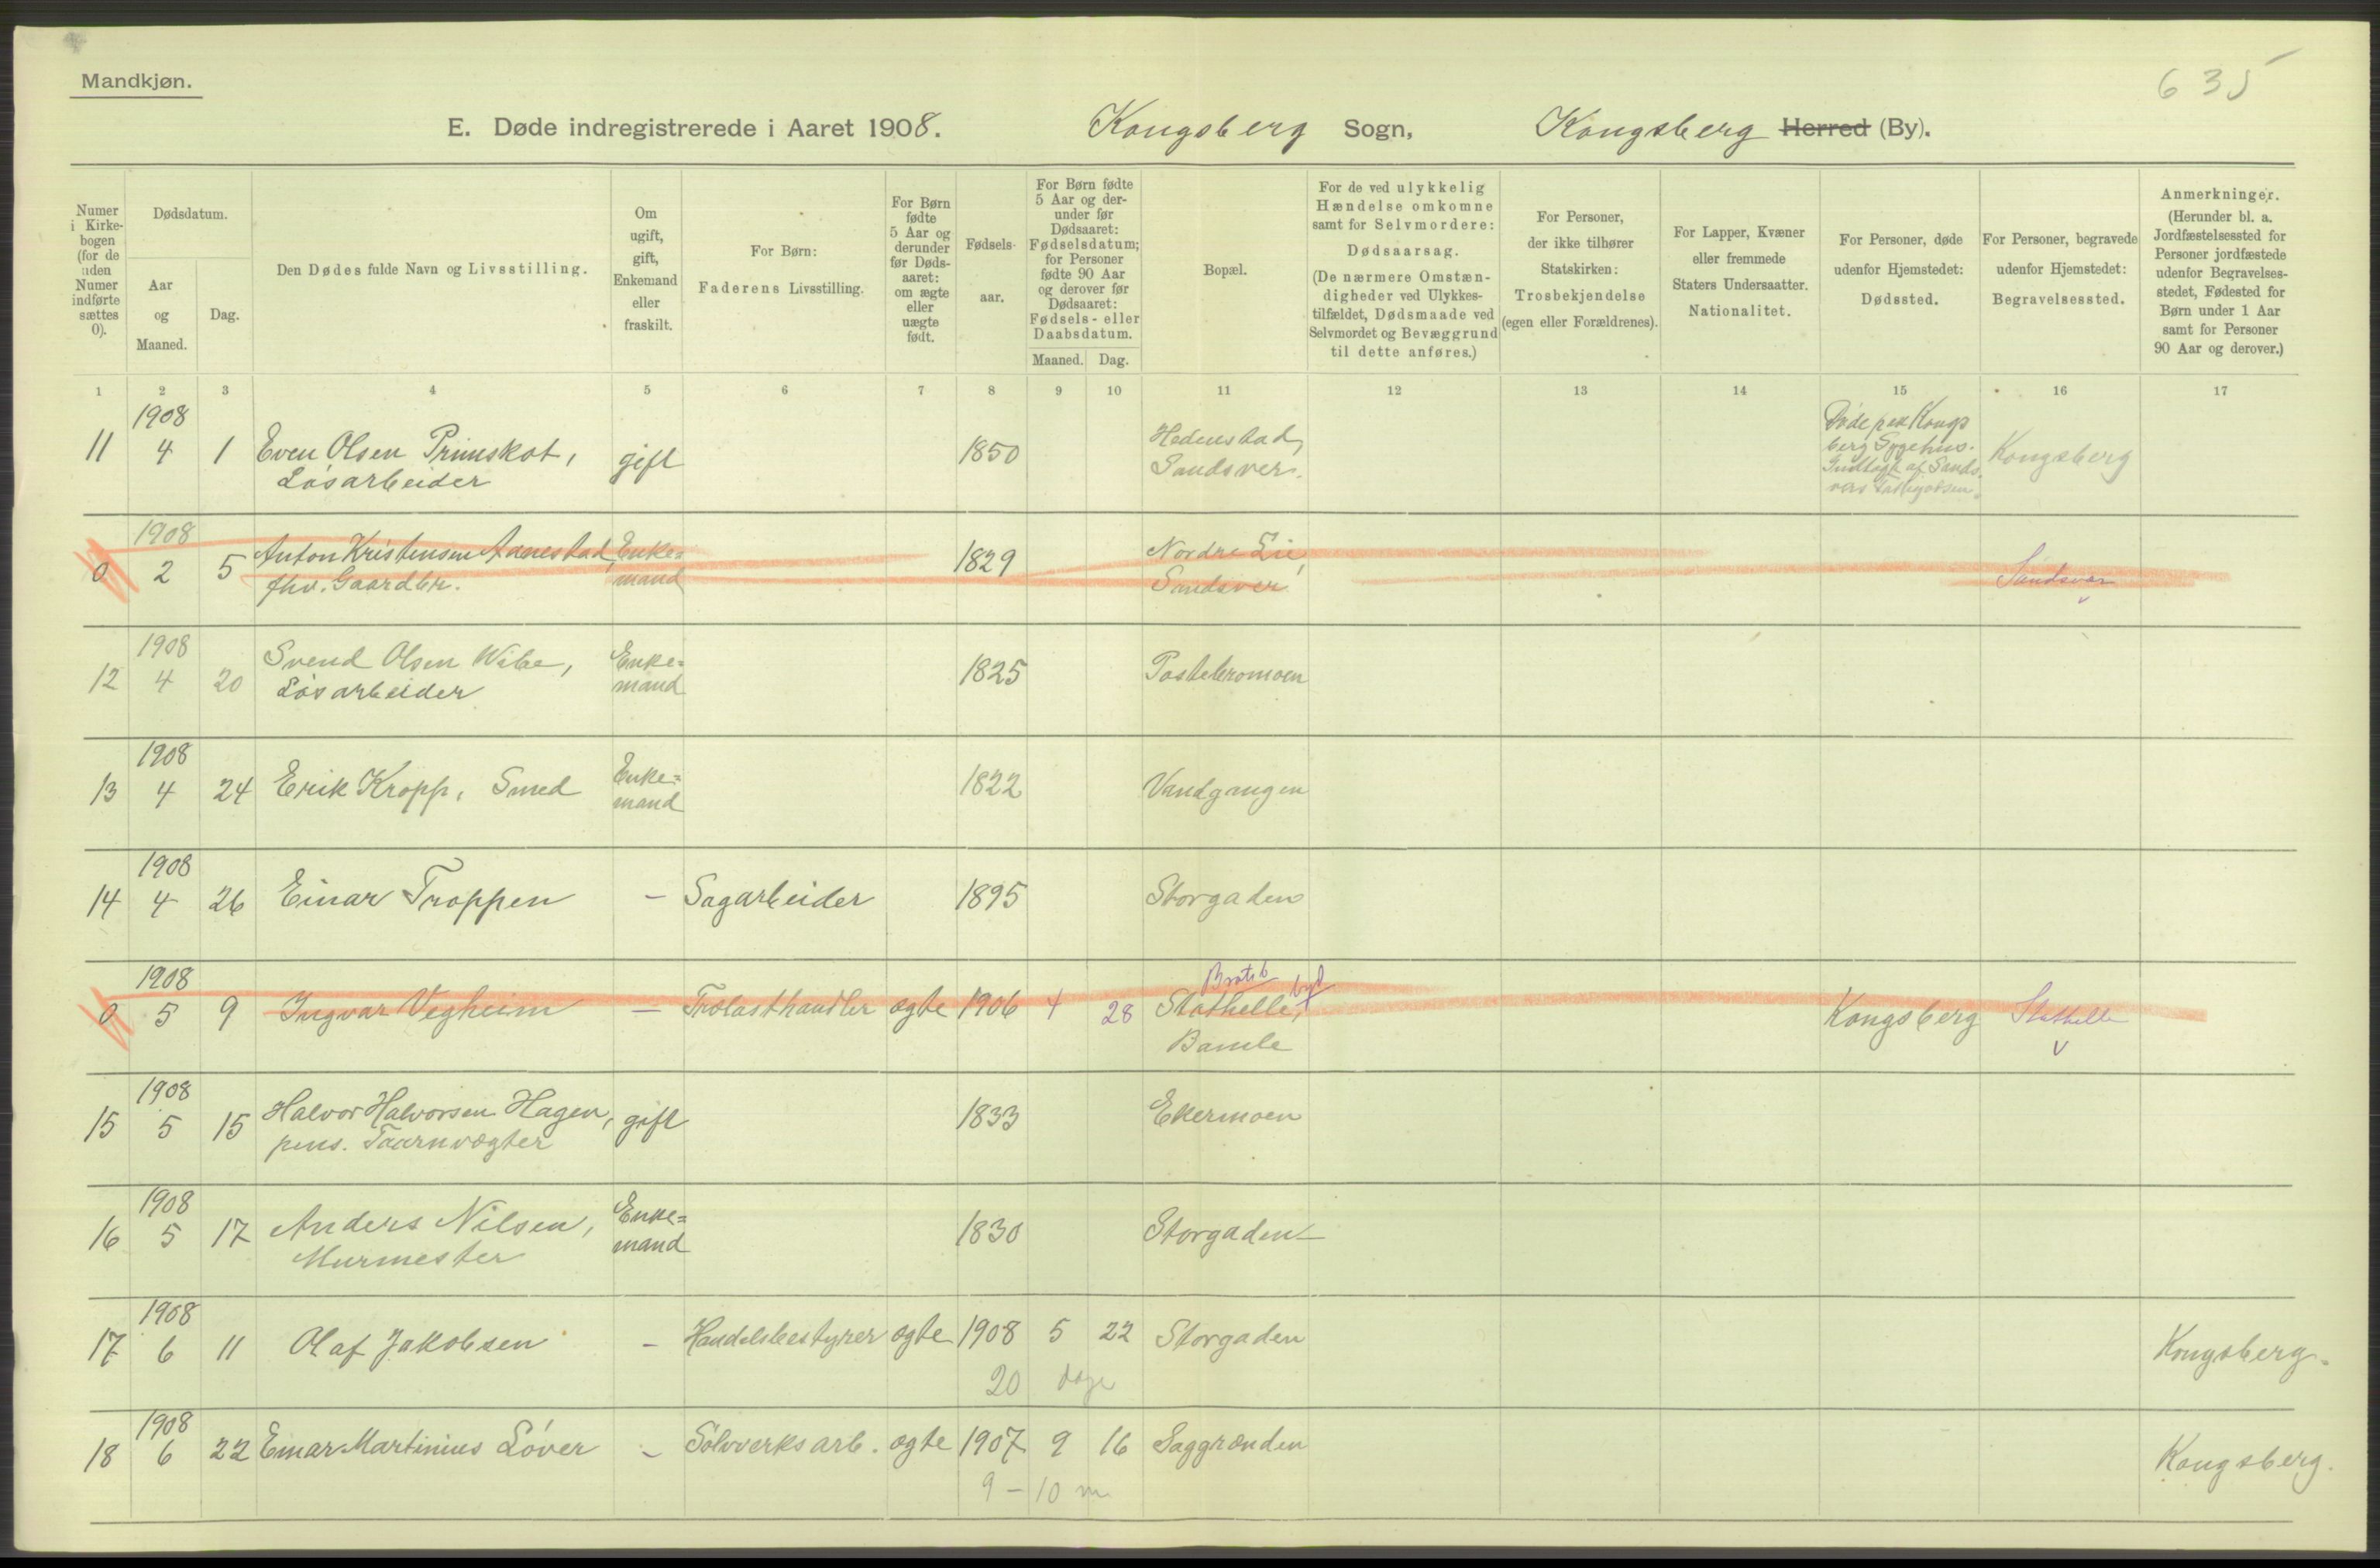 635
Mandkjøn.
E. Døde indregistrerede i Aaret 1908. Kongsberg Sogn, Kongsberg Herred (By).
Numer i Kirkebogen (for de uden Numer indførte sættes 0).
Dødsdatum.
Aar og Maaned.
Dag.
Den Dødes fulde Navn og Livsstilling.
Om ugift, gift, Enkemand eller fraskilt.
For Børn: Faderens Livsstilling.
For Børn fødte 5 Aar og derunder før Dødsaaret: om ægte eller uægte født.
Fødselsaar.
For Børn fødte 5 Aar og derunder før Dødsaaret: Fødselsdatum; for Personer fødte 90 Aar og derover før Dødsaaret: Fødsels- eller Daabsdatum.
Maaned. Dag.
Bopæl.
For de ved ulykkelig Hændelse omkomne samt for Selvmordere: Dødsaarsag. (De nærmere Omstændigheder ved Ulykkestilfældet, Dødsmaade ved Selvmordet og Bevæggrund til dette anføres.)
For Personer, der ikke tilhører Statskirken: Trosbekjendelse (egen eller Forældrenes).
For Lapper, Kvæner eller fremmede Staters Undersaatter. Nationalitet.
For Personer, døde udenfor Hjemstedet: Dødssted.
For Personer, begravede udenfor Hjemstedet: Begravelsessted.
Anmerkninger. (Herunder bl. a. Jordfæstelsessted for Personer jordfæstede udenfor Begravelsesstedet, Fødested for Børn under 1 Aar samt for Personer 90 Aar og derover.)
1 2 3 4 5 6 7 8 9 10 11 12 13 14 15 16 17
1908
11 4 1 Even Olsen Primskot, gift 1850 Hedenstad, Døde paa Kongs
Løsarbeider Sandsver. berg Sygehus. Kongsberg
Indlagt af Sands
1908
0 2 5 Anton Kristensen Aanestad, Enke= 1829 Nordre Lie,
fhv. Gaardbr. mand Sandsver Sandsvær
1908
12 4 20 Svend Olsen Wibe, Enke= 1825
Løsarbeider mand
1908
13 4 24 Erik Kropp, Smed Enke= 1822 Vandgangen
mand
1908
14 4 26 Einar Troppen - Sagarbeider 1895 Storgaden
1908 Bratsb
0 5 9 Ingvar Vegheim - Trælasthandler ægte 1906 4 28 Stathelle, Kongsberg Stathelle
Bamle
1908
15 5 15 Halvor Halvorsen Hagen, gift 1833 Ekermoen
pens. Taarnvægter
1908
16 5 17 Anders Nilsen, Enke= 1830 Storgaden
Murmester mand
1908
17 6 11 Olaf Jakobsen - Handelsbestyrer ægte 1908 5 22 Storgaden Kongsberg.
20 dage
1908
18 6 22 Einar Martinius Løver - Sølvverksarb. ægte 1907 9 16 Saggrænden Kongsberg.
9 - 10 m